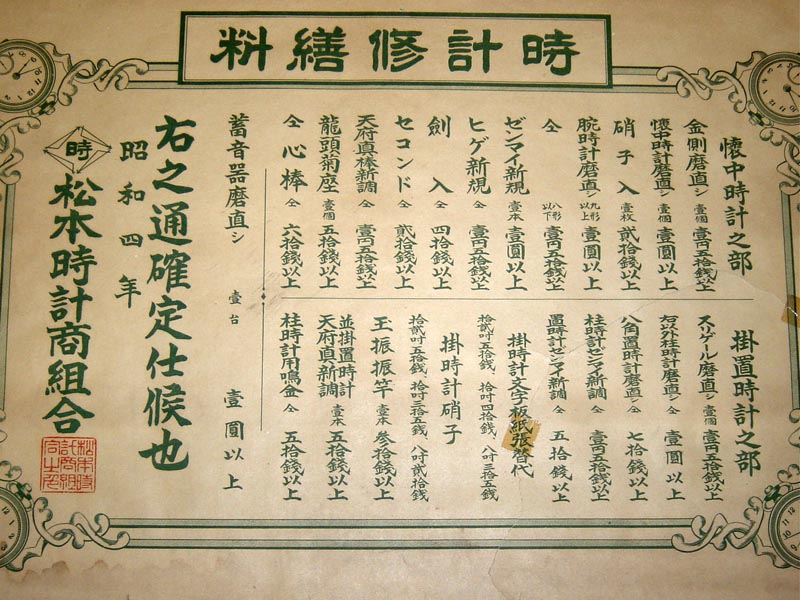 時計修繕料
懐中時計之部
金側磨直シ 壹個 壹円五拾錢以上
懐中時計磨直シ 壹個 壹圓以上
硝子入 壹枚 貳拾錢以上
腕時計磨直シ 九形以上 壹圓以上
仝 八形以下 壹円五拾錢以上
ゼンマイ新規 壹本 壹圓以上
ヒゲ新規 仝 壹円五拾錢以上
劍入 仝 四拾錢以上
セコンド 仝 貳拾錢以上
天府真棒新調 仝 壹円五拾錢以上
龍頭菊座 壹個 五拾錢以上
仝心棒 仝 六拾錢以上
掛置時計之部
スリゲール磨直シ 壹個 壹円五拾錢以上
右以外柱時計磨直シ 仝 壹圓以上
八角置時計磨直シ 仝 七拾錢以上
柱時計ゼンマイ新調 仝 壹円五拾錢以上
置時計ゼンマイ新調 仝 五拾錢以上
掛時計文字板紙張替代
拾貳吋五拾錢、拾吋四拾錢、八吋三拾五錢
掛時計硝子
拾貳吋五拾錢、拾吋三拾五錢、八吋貳拾錢
玉振振竿 壹本 參拾錢以上
並掛置時計天府真新調 壹本 五拾錢以上
柱時計用鳴金 仝 五拾錢以上
蓄音器磨直シ 壹台 壹圓以上
右之通確定仕候也
昭和四年
時 松本時計商組合